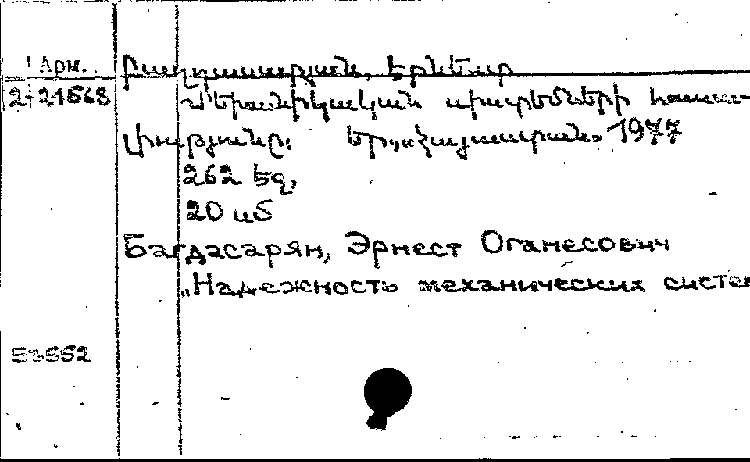 Арм. Բաղդասարյան, Էրնեստ
2-21568 Մեխանիկական սիստեմների հուսա-
լիությունը: Եր., «Հայաստան» 1977
262 էջ,
20 սմ
Багдасарян, Эрнест Оганесович
„Надежность механических систем
53552